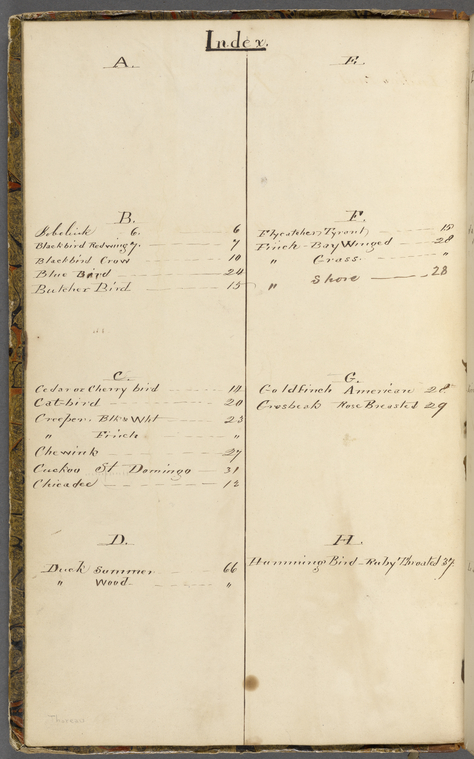 Index.
A.
B.
Bobolink 6. 6
Blackbird Redwing 7. 7
Blackbird Crow 10
Blue Bird 24
Butcher Bird 15
C.
Cedar or Cherry bird
Cat-bird 20
Creeper. Blk & Wht 23
" Finch "
Chewink 27
Cuckoo St Domingo 31
Chicadee 12
D.
Duck Summer 66
" Wood "
E.
F.
Flycatcher, Tyrant, 15
Finch Bay Winged 28
" Grass "
" Shore 28
G.
Goldfinch American 28
Grosbeak Rose Breasted 29
H.
Humming Bird Ruby Throated 37